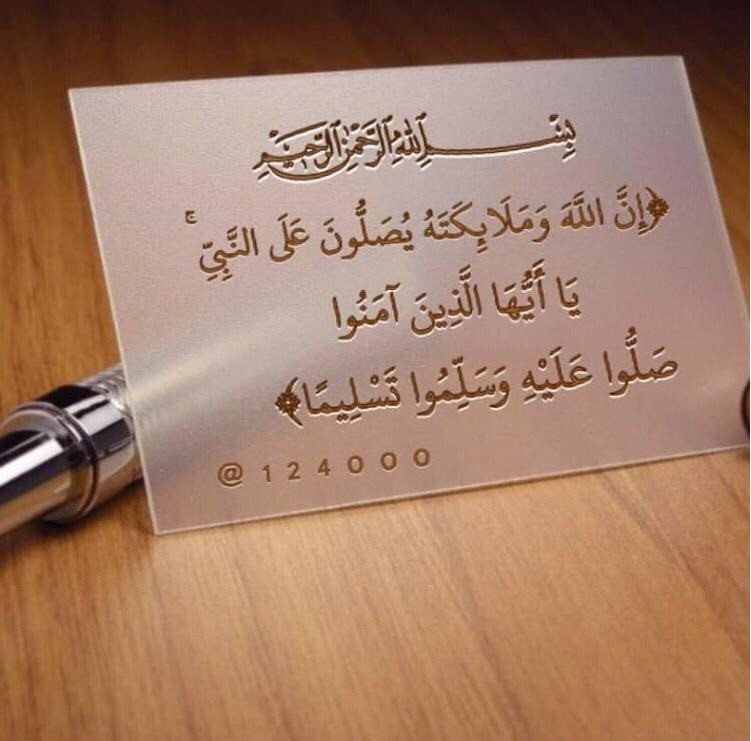 بِسْمِ اللَّهِ الرَّحْمَٰنِ الرَّحِيمِ
﴿إِنَّ اللَّهَ وَمَلَابِكَتَهُ يُصَلُّونَ عَلَى النَّبِيِّ ۚ
يَا أَيُّهَا الَّذِينَ آمَنُوا
صَلُّوا عَلَيْهِ وَسَلِّمُوا تَسْلِيمًا﴾
@124000